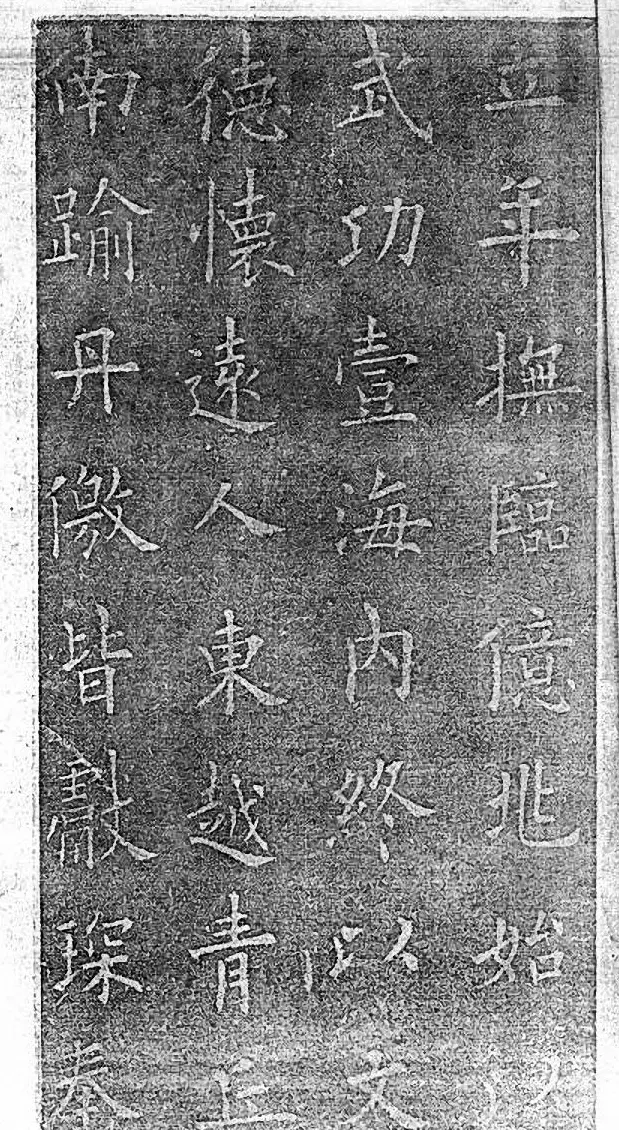 立年撫臨億兆始以
武功壹海內終以文
德懷遠人東越青丘
南踰丹徼皆獻琛奉